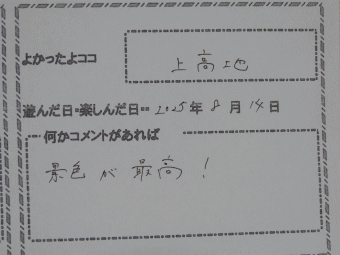 よかったよココ
上高地
遊んだ日・楽しんだ日… 2025年 8月 14日
何かコメントがあれば
景色が最高!